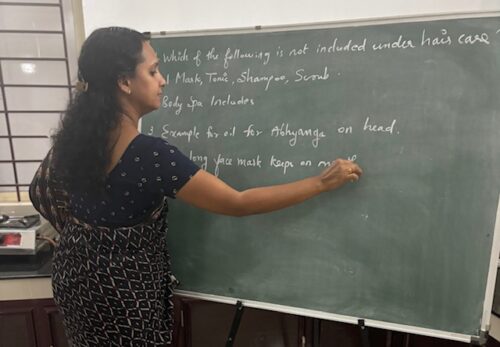 Which of the following is not included under hair care?
Mask, Tonic, Shampoo, Scrub.
Body Spa Includes
3 Example for oil for Abhyanga on head.
long face mask keeps on